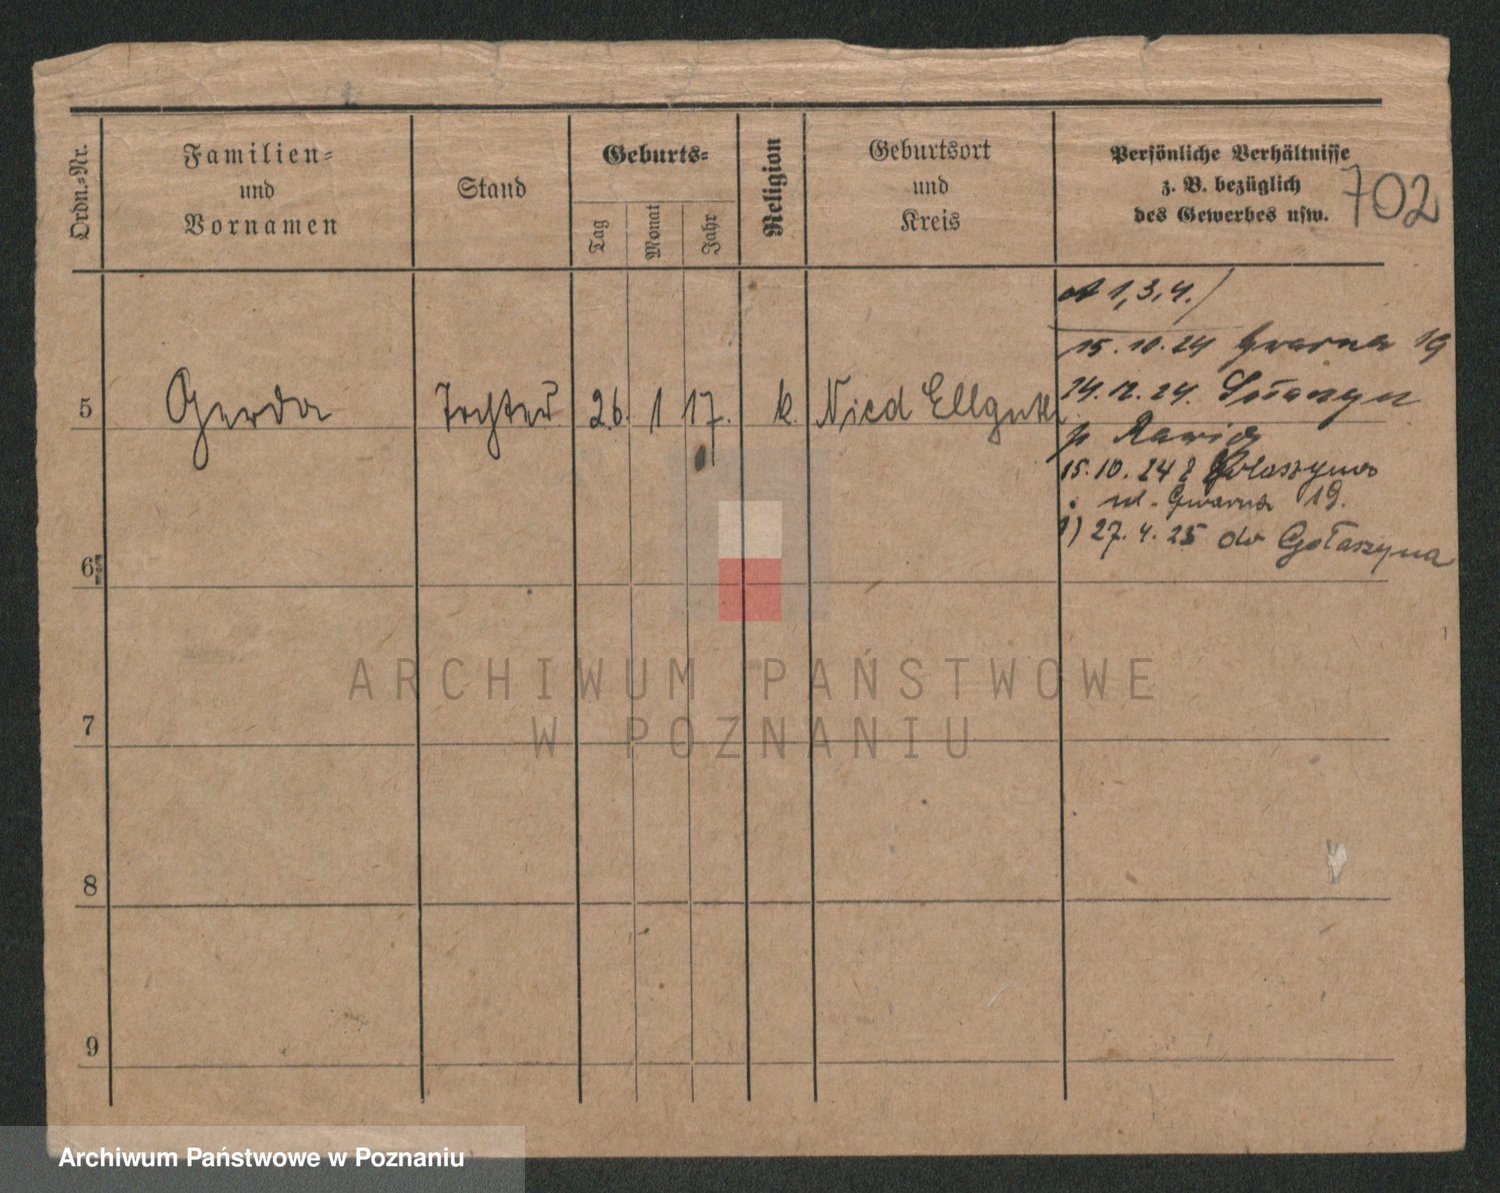 Ordn.-Nr.
Familien-
und
Vornamen
Stand
Geburts-
Tag
Monat
Jahr
Religion
Geburtsort
und
Kreis
Persönliche Verhältnisse
z. B. bezüglich
des Gewerbes usw.
702
1, 3, 4.
15.10.24 Gwarna 19
24.12.24.
5 Gerda Tochter 26. 1 17. k. Nied Ellguth
p Rawicz
15.10.24 z Gołaszyna
ul. Gwarna 19.
1) 27.4.25 do Gołaszyna
6
7
8
9
ARCHIWUM PAŃSTWOWE
W POZNANIU
Archiwum Państwowe w Poznaniu